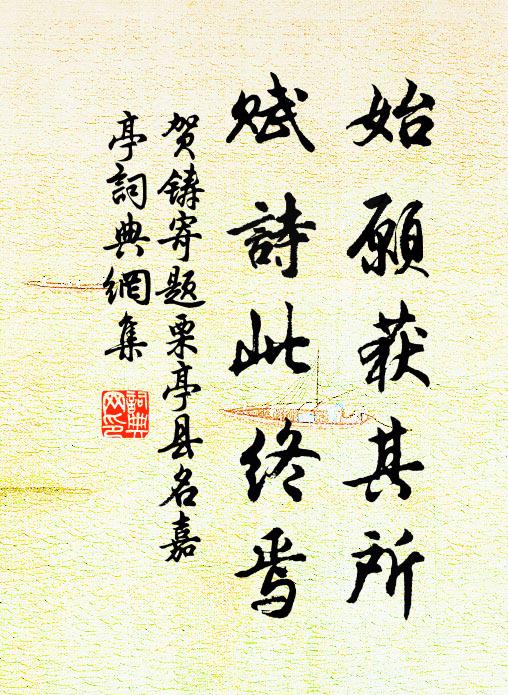 始願获其所
賦詩此终焉
贺铸寄题栗亭县名嘉
亭詞典網集
詞典
网印